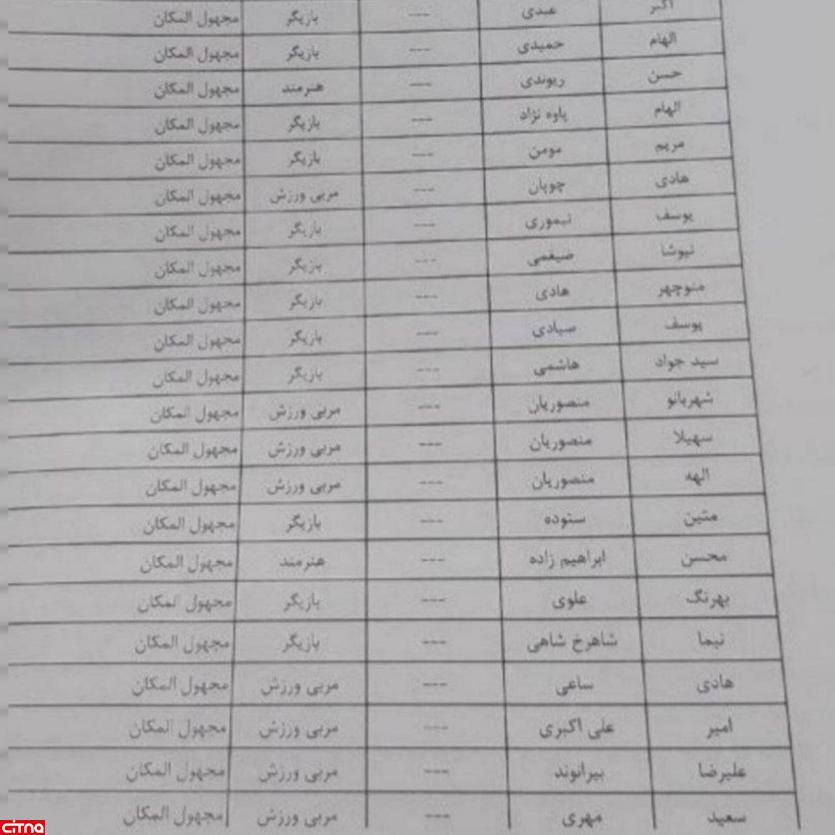 اکبر عبدی --- بازیگر مجهول المکان
الهام حمیدی --- بازیگر مجهول المکان
حسن ریوندی --- هنرمند مجهول المکان
الهام پاوه نژاد --- بازیگر مجهول المکان
مریم مومن --- بازیگر مجهول المکان
هادی چوپان --- مربی ورزش مجهول المکان
یوسف تیموری --- بازیگر مجهول المکان
نیوشا ضیغمی --- بازیگر مجهول المکان
منوچهر هادی --- بازیگر مجهول المکان
یوسف صیادی --- بازیگر مجهول المکان
سید جواد هاشمی --- بازیگر مجهول المکان
شهربانو منصوریان --- مربی ورزش مجهول المکان
سهیلا منصوریان --- مربی ورزش مجهول المکان
الهه منصوریان --- مربی ورزش مجهول المکان
متین ستوده --- بازیگر مجهول المکان
محسن ابراهیم زاده --- هنرمند مجهول المکان
بهرنگ علوی --- بازیگر مجهول المکان
نیما شاهرخ شاهی --- بازیگر مجهول المکان
هادی ساعی --- مربی ورزش مجهول المکان
امیر علی اکبری --- مربی ورزش مجهول المکان
علیرضا بیرانوند --- مربی ورزش مجهول المکان
سعید مهری --- مربی ورزش مجهول المکان
citna